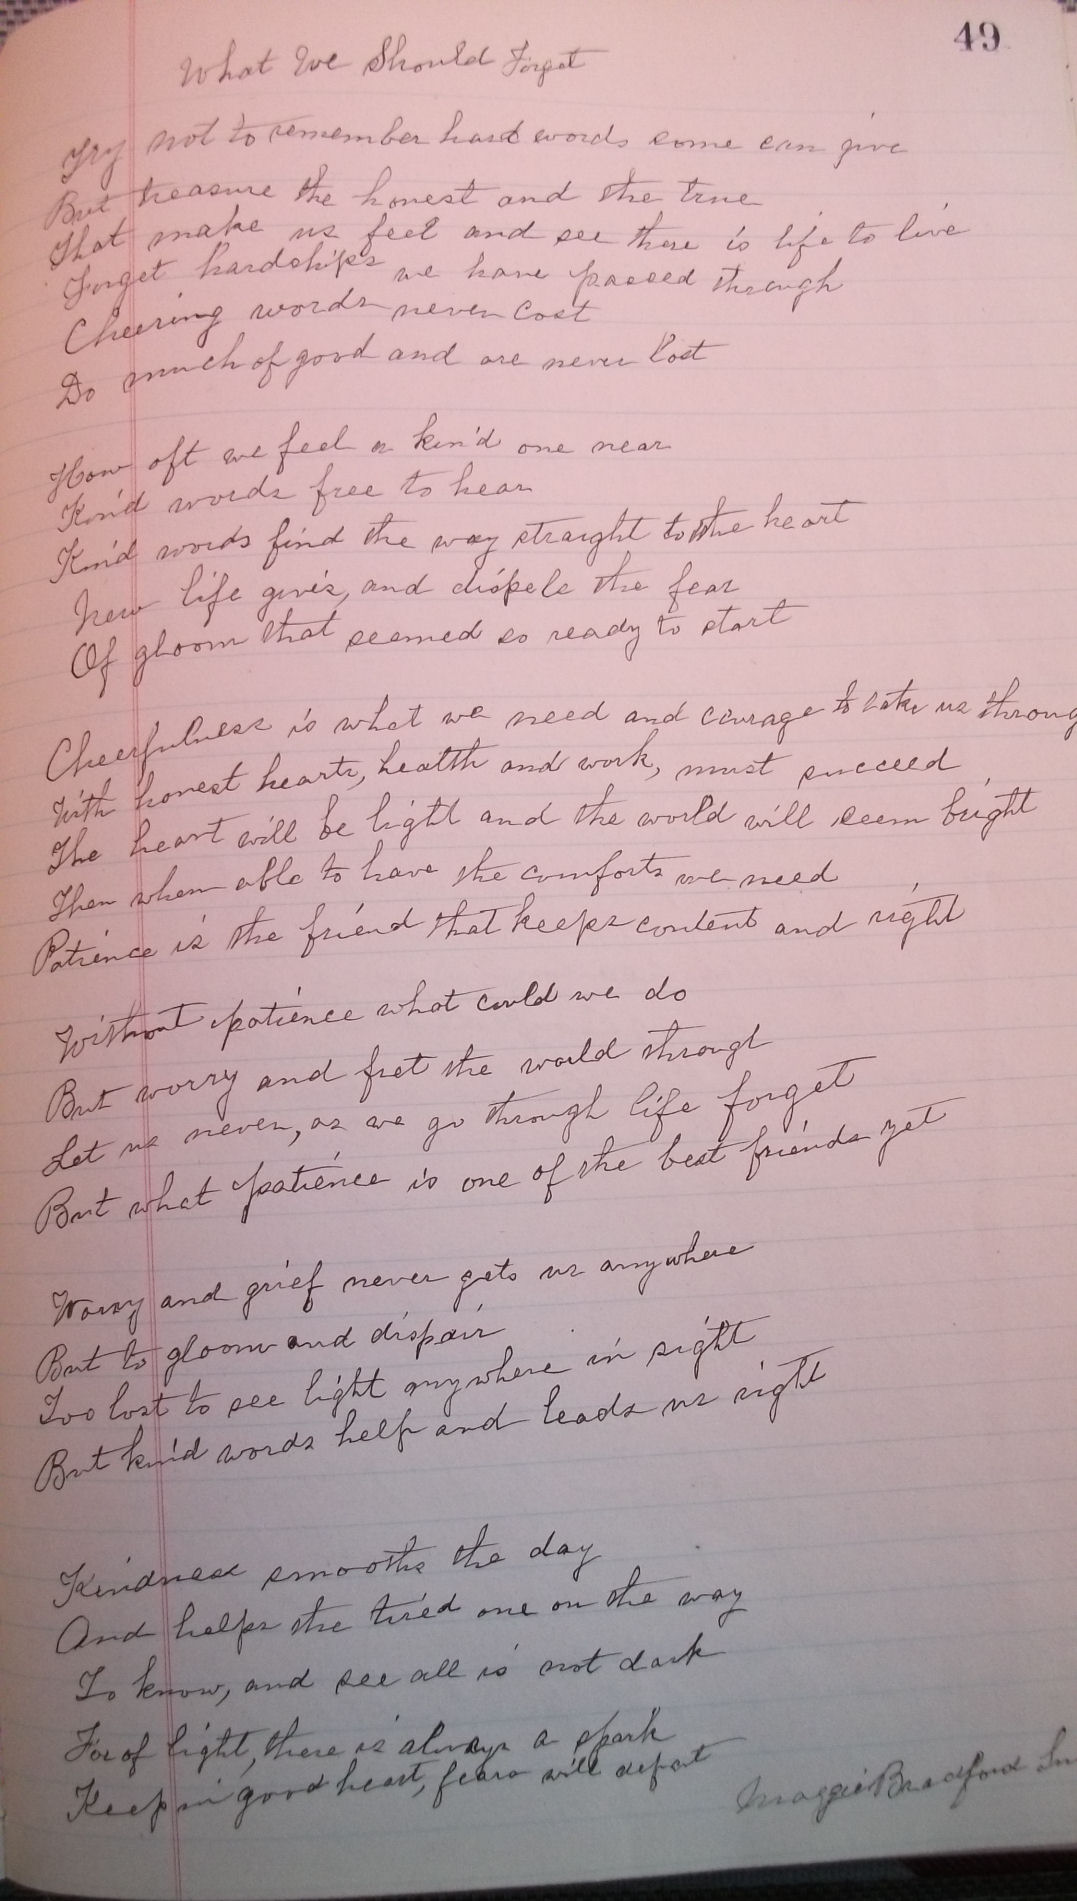 49
What We Should Forget
Try not to remember hard words some can give
But treasure the honest and the true
That make us feel and see there is life to live
Forget hardships we have passed through
Cheering words never cost
Do much of good and are never lost
How oft we feel a kind one near
Kind words free to hear
Kind words find the way straight to the heart
New life gives, and dispels the fear
Of gloom that seemed so ready to start
Cheerfulness is what we need and courage to take us throug
With honest hearts, health and work, must succeed
The heart will be light and the world will seem bright
Then when able to have the comforts we need
Patience is the friend that keeps content and right
Without patience what could we do
But worry and fret the world through
Let us never, as we go through life forget
But what patience is one of the best friends yet
Worry and grief never gets us anywhere
But to gloom and dispair
Too lost to see light anywhere in sight
But kind words help and leads us right
Kindness smooths the day
And helps the tired one on the way
To know, and see all is not dark
For of light, there is always a spark
Keep in good heart, fears will depart
Maggie Bradford